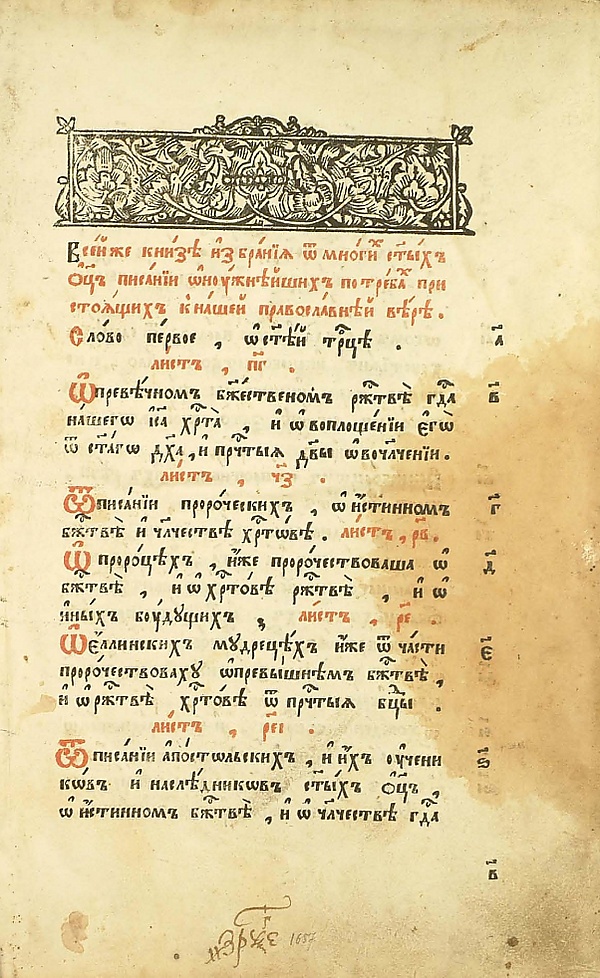 Всѣ́йже кни́зѣ и҆збра́нїѧ ѿ мно́ги́х ст҃ы́хъ
ѻ҆ц҃ъ писа́нїи ѡ҆ ноу́жнѣ́йшихъ потре́ба́х при
стоѧ́щихъ к̾ на́шей правосла́внѣй вѣ́рѣ .
Сло́во пе́рвое , ѡ҆ ст҃ѣ́й трⷪ҇цѣ . а҃
ли́стъ , п҃г .
Ѡ҆ превѣ́чномъ бж҃е́ственомъ рж҃твѣ̀ гдⷭ҇а в҃
на́шегѡ і҆с҃а хрⷭ҇та̀ , и҆ ѡ҆ воплоще́нїи є҆гѡ̀
ѿ ст҃а́гѡ дх҃а , и҆ прчⷭ҇тыѧ дв҃ы ѡ҆ вочл҃че́нїи .
ли́стъ , ч҃з .
Ѿ писа́нїи проро́ческихъ , ѡ҆ и҆́стинномъ г҃
бжⷭ҇твѣ̀ и҆ чл҃чествѣ хрⷭ҇то́вѣ . ли́стъ , р҃в .
Ѡ҆ проро́цѣхъ , и҆̀же проро́чествоваша ѡ҆ д҃
бжⷭ҇твѣ̀ , и҆ ѡ҆ хрⷭ҇то́вѣ ржⷭ҇твѣ̀ , и҆ ѡ҆
и҆́ныхъ боу́дущихъ , ли́стъ , р҃е .
Ѡ҆ є҆́ллинскихъ мудреце́хъ и҆́же ѿ ча́сти є҃
проро́чествоваху ѡ҆ превы́шнѣмъ бжⷭ҇твѣ̀ ,
и҆ ѡ҆ ржⷭ҇твѣ̀ хрⷭ҇то́вѣ ѿ прчⷭ҇тыѧ бц҃ы .
ли́стъ , р҃еі .
Ѿ писа́нїи а҆по́стѡльскихъ , и҆ и҆́хъ оу҆чени ѕ҃
кѡ́въ и҆ наслѣ́дникѡвъ ст҃ы́хъ ѻ҆ц҃ъ ,
ѡ҆ и҆́стинномъ бжⷭ҇твѣ̀ , и҆ ѡ҆ чл҃чествѣ гдⷭ҇а
в҃
1657